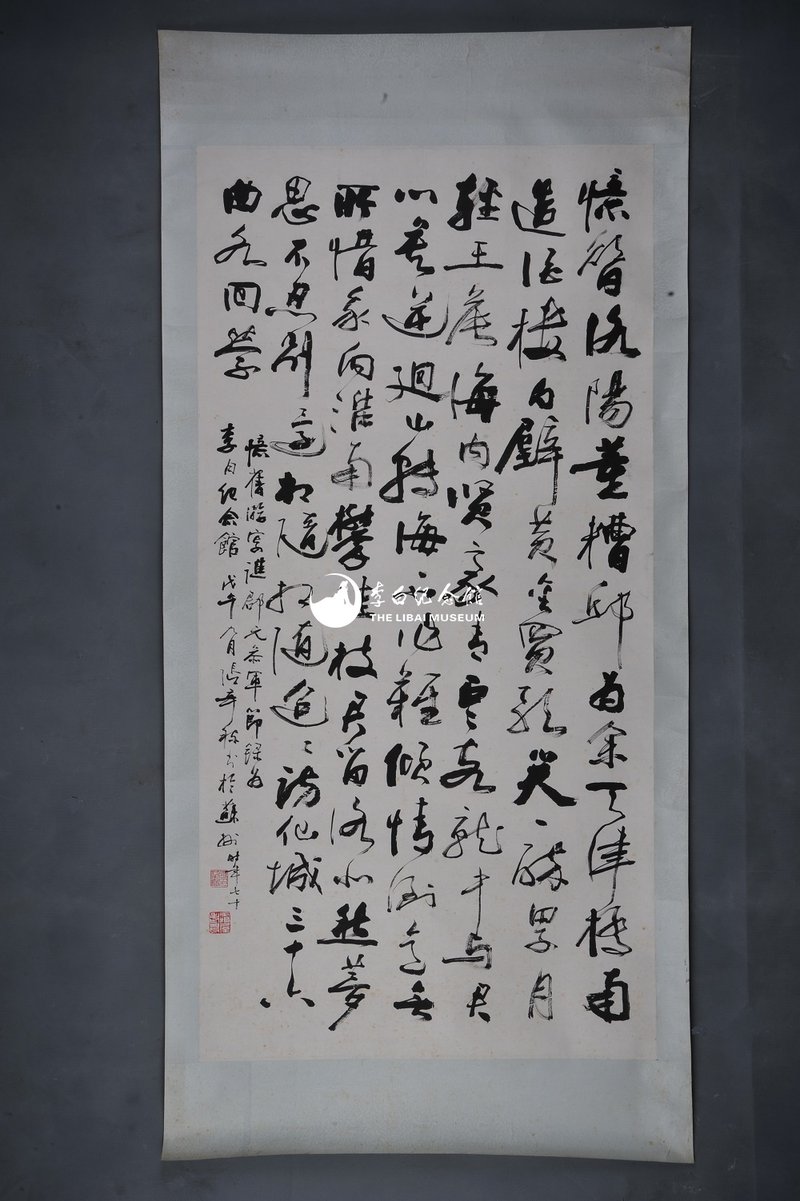 憶昔洛陽董糟邱為余天津橋南
造酒樓白璧黃金買歌笑一醉累月
輕王侯海內賢豪青雲客就中与君
心莫逆迴山轉海不作難傾情倒意無
所惜我向淮南攀桂枝君留洛北愁夢
思不忍別還相隨相隨迢〻訪仙城三十六
曲水回縈
憶舊遊寄譙郡元參軍節錄為
李白纪念館 戊午月張辛稼书於蘇州時年七十
李白纪念館
THE LIBAI MUSEUM